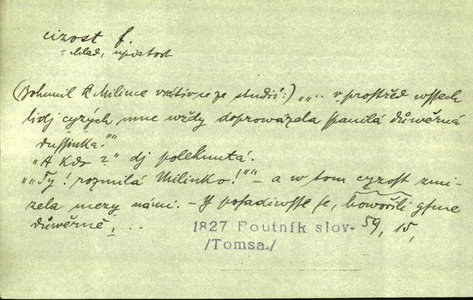 cizost f.
= chlad, upjatost
(Bohumil k Milince vrátiv se ze studií:) „„... v prostřed wssech
lidj cyzých mne wždy doprowázela spanilá důwěrná
dussinka.“
„A kdo?“ dj poleknutá.
„„Ty! rozmilá Milinko!““ – a w tom cyzost zmi-
zela mezy námi. – Y posadiwsse se, howořili gsme
důwěrně, ...
1827 Poutník slov- 59, 15,
/Tomsa./